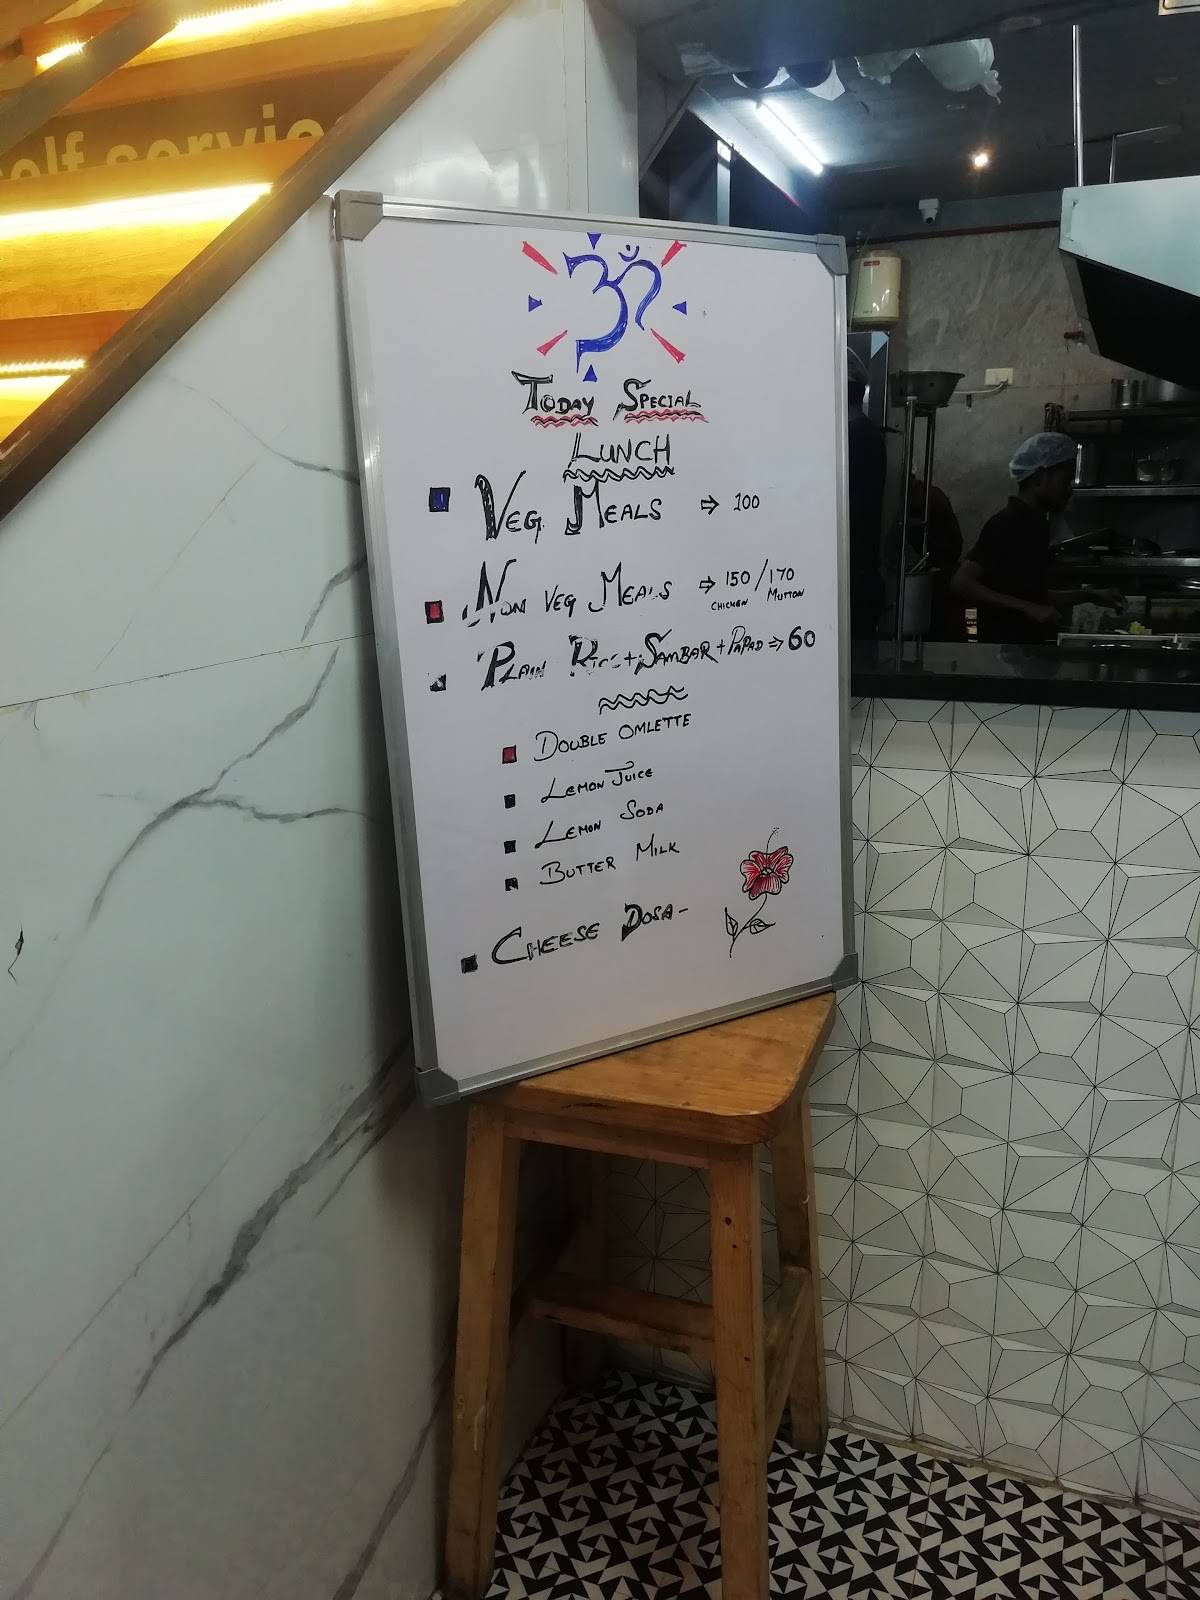 self service
ॐ
TODAY SPECIAL
LUNCH
VEG MEALS ⇨ 100
NON VEG MEALS ⇨ 150 / 170
CHICKEN MUTTON
PLAIN RICE + SAMBAR + PAPAD ⇨ 60
DOUBLE OMLETTE
LEMON JUICE
LEMON SODA
BUTTER MILK
CHEESE DOSA -